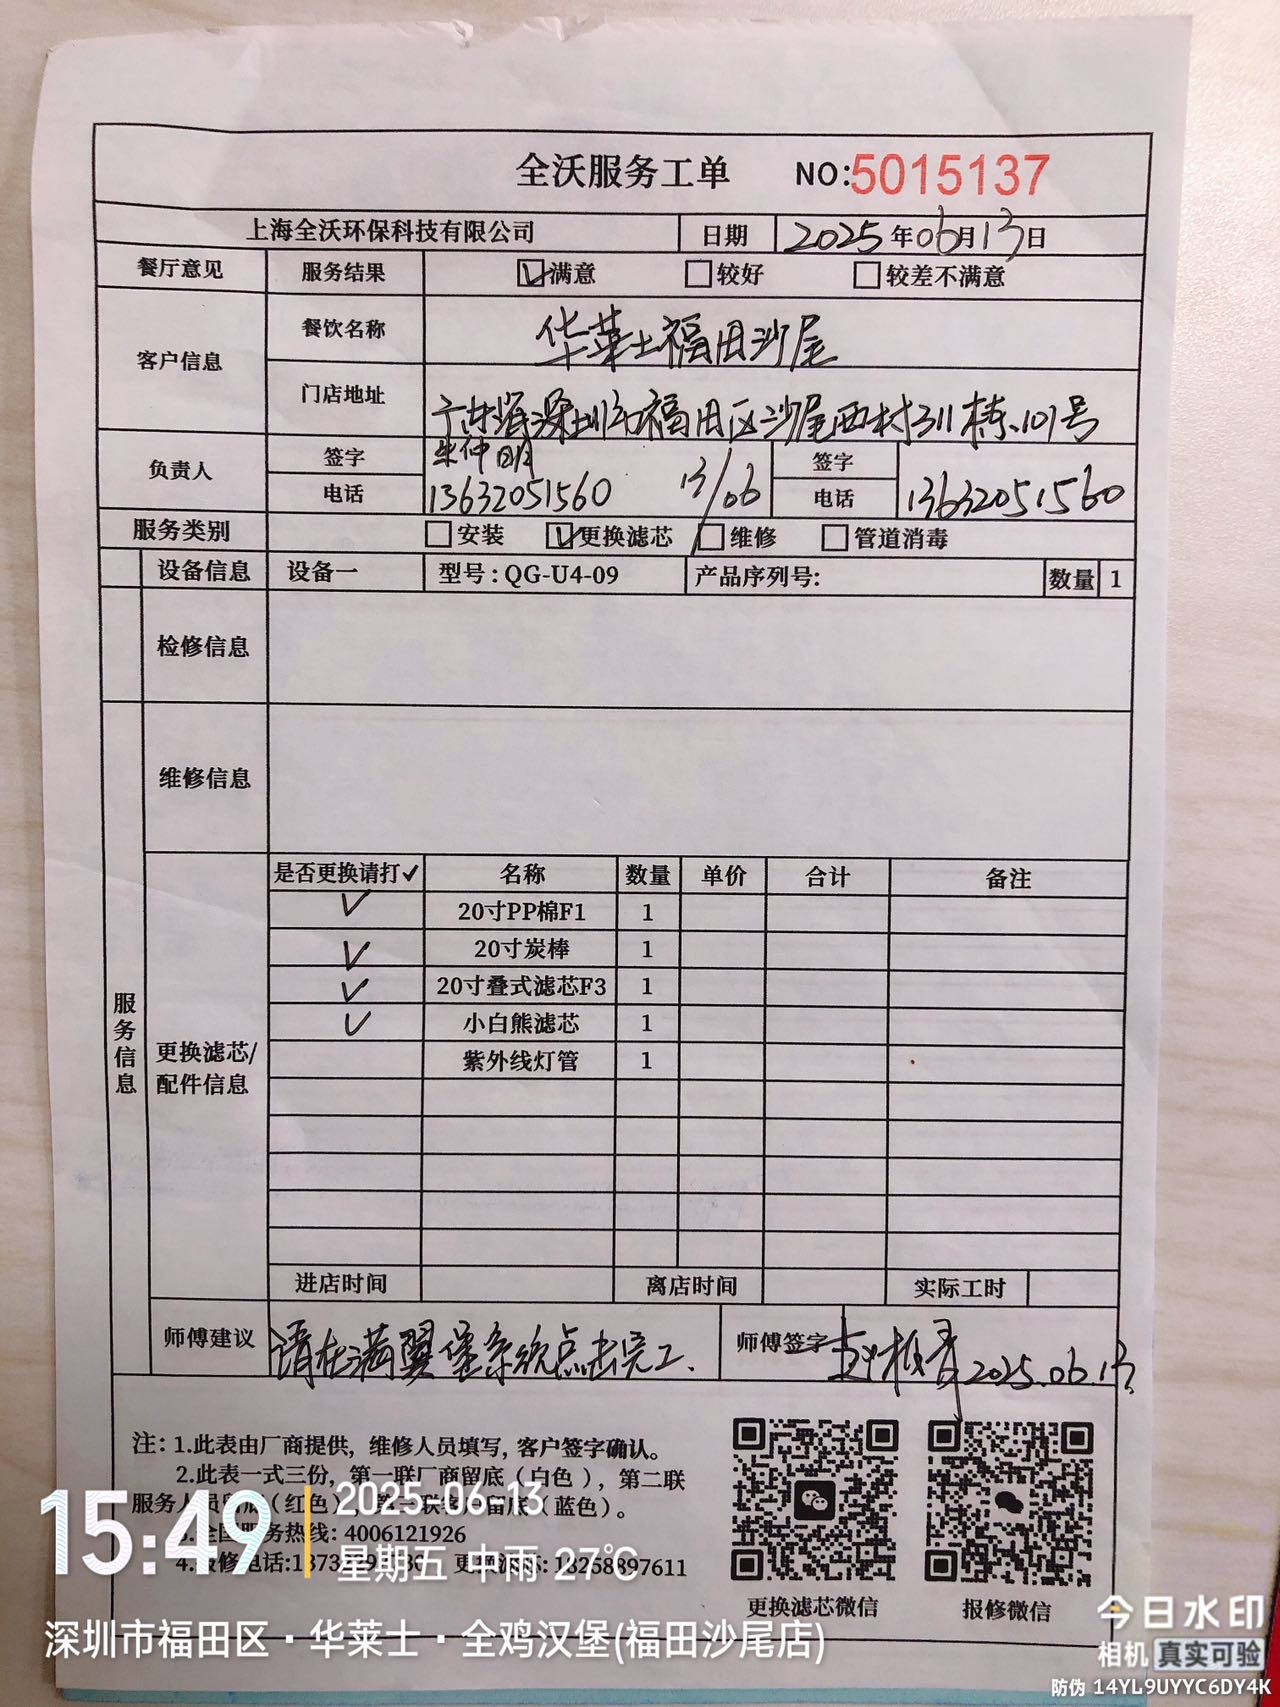 全沃服务工单 NO:5015137
上海全沃环保科技有限公司 日期 2025年06月13日
餐厅意见 服务结果 ☑满意 □较好 □较差不满意
客户信息 餐饮名称 华莱士福田沙尾
门店地址 广东省深圳市福田区沙尾西村311栋101号
负责人 签字 朱仲明 签字
电话 13632051560 13/06 电话 13632051560
服务类别 □安装 ☑更换滤芯 □维修 □管道消毒
设备信息 设备一 型号:QG-U4-09 产品序列号: 数量 1
检修信息
维修信息
服务信息
更换滤芯/
配件信息
是否更换请打✓ 名称 数量 单价 合计 备注
✓ 20寸PP棉F1 1
✓ 20寸炭棒 1
✓ 20寸叠式滤芯F3 1
✓ 小白熊滤芯 1
紫外线灯管 1
进店时间 离店时间 实际工时
师傅建议 请在满翼堡系统点击完工. 师傅签字 2025.06.13
注: 1.此表由厂商提供, 维修人员填写, 客户签字确认。
2.此表一式三份, 第一联厂商留底(白色), 第二联
服务人员留底(红色), 客户留底(蓝色)。
全国服务热线: 4006121926
4.报修电话: 18268897611
更换滤芯微信 报修微信
15:49
2025-06-13
星期五 中雨 27℃
深圳市福田区·华莱士·全鸡汉堡(福田沙尾店)
今日水印
相机 真实可验
防伪 14YL9UYYC6DY4K